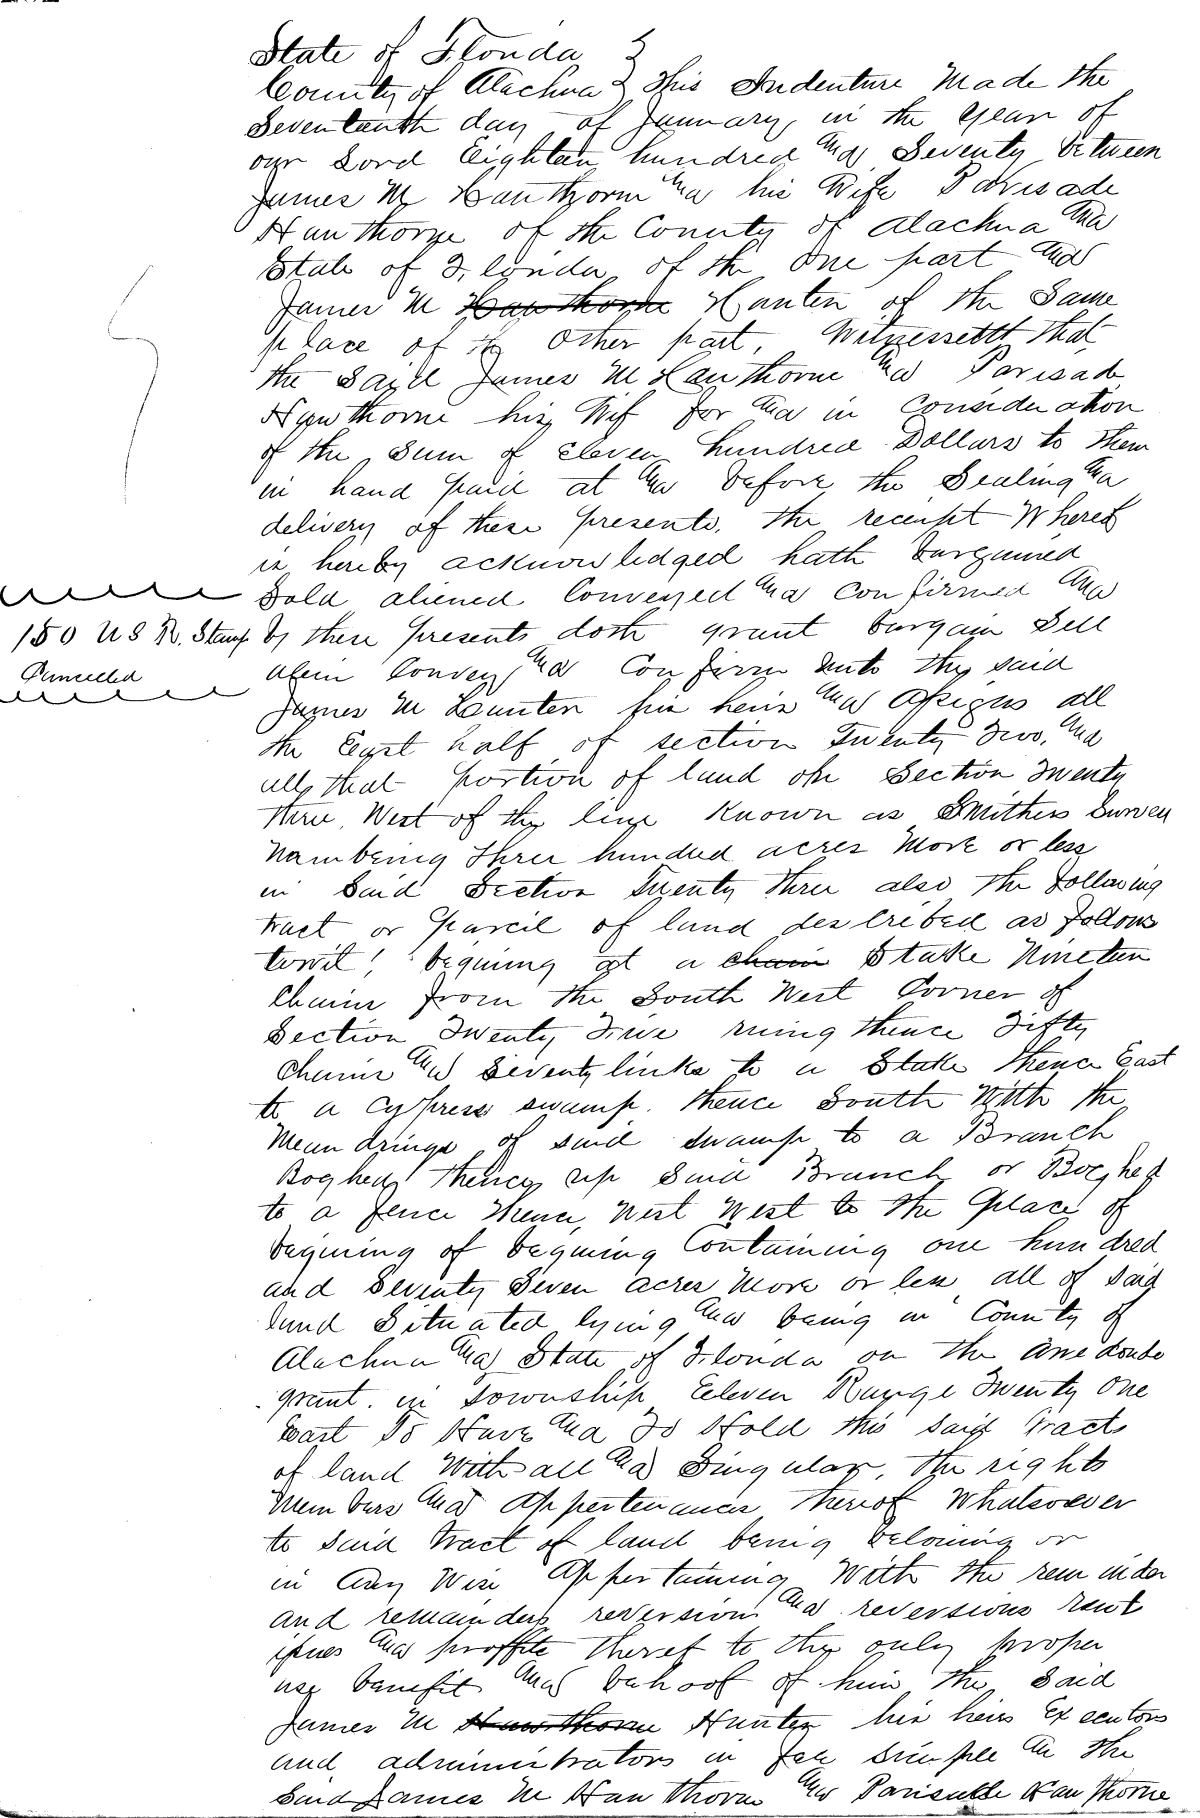 State of Florida }
County of Alachua } This Indenture Made the
Seventeenth day of January, in the year of
our Lord Eighteen hundred and Seventy between
James M Hawthorne and his Wife Parisade
Hawthorne of the County of Alachua and
State of Florida, of the One part and
James M Hawthorne Hunter of the Same
place of the Other part, Witnesseth that
the Said James M Hawthorne and Parisade
Hawthorne his Wif for and in Consideration
of the Sum of Eleven hundred Dollars to them
in hand paid at and before the Sealing and
delivery of these presents, the receipt Whereof
is hereby acknowledged hath bargained
Sold aliened Conveyed and Confirmed and
150 U S R. Stamp
Cancelled
by these presents doth grant bargain Sell
alein Convey, and Confirm unto the said
James M Hunter his heirs and Assigns all
the East half of section Twenty Two, and
all that portion of land on Section Twenty
three, West of the line Known as Smithers Survey
Numbering Three hundred acres More or less
in Said Section Twenty three also the following
tract or parcil of land described as follows
towit! begining at a chain Stake Nineteen
Chains from the South West Corner of
Section Twenty Five runing thence Fifty
Chains and Seventy links to a Stake thence East
to a Cypress swamp. thence South With the
Meandrings of said swamp to a Branch
Boghed, thence up Said Branch or Boghed
to a fence thence West West to the place of
begining of begining Containing one hundred
and Seventy Seven acres More or less all of said
land Situated lying and being in County of
Alachua and State of Florida on the Arredondo
grant. in Township Eleven Range Twenty One
East To Have and To Hold this said tracts
of land With all and Singular, the rights
Members and Appertenances thereof Whatsoever
to said tract of land being beloning or
in Any Wise Appertaining With the reminder
and remainders reversion and reversions rent
issues and proffits thereof to the only proper
use benefit and behoof of him the Said
James M Hawthorne Hunter his heirs Executors
and administrators in fee simple And the
Said James M Hawthorne and Parisade Hawthorne